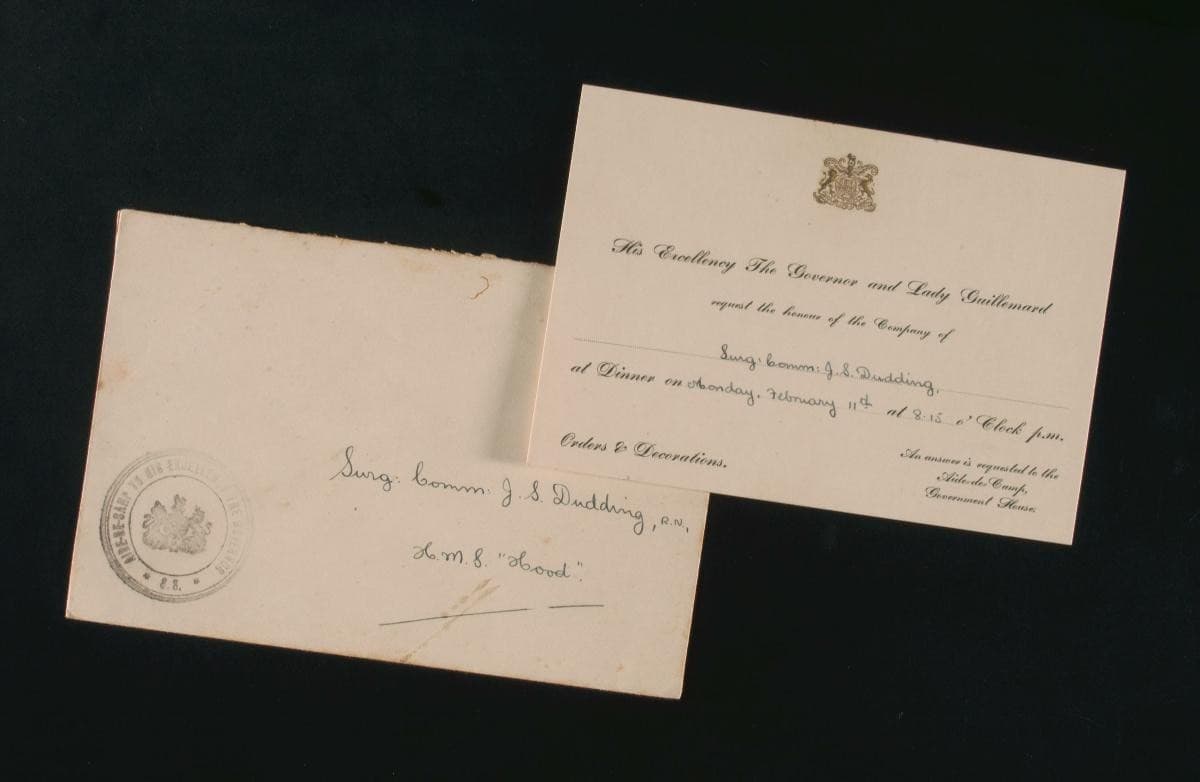 His Excellency The Governor and Lady Guillemard
request the honour of the Company of
Surg: Comm: J. S. Dudding,
at Dinner on Monday, February 11th at 8.15 o' Clock p.m.
Orders & Decorations.
An answer is requested to the
Aide-de-Camp,
Government House.
Surg: Comm: J. S. Dudding, R.N.,
H.M.S. "Hood".
AIDE-DE-CAMP TO HIS EXCELLENCY THE GOVERNOR
* S.S. *